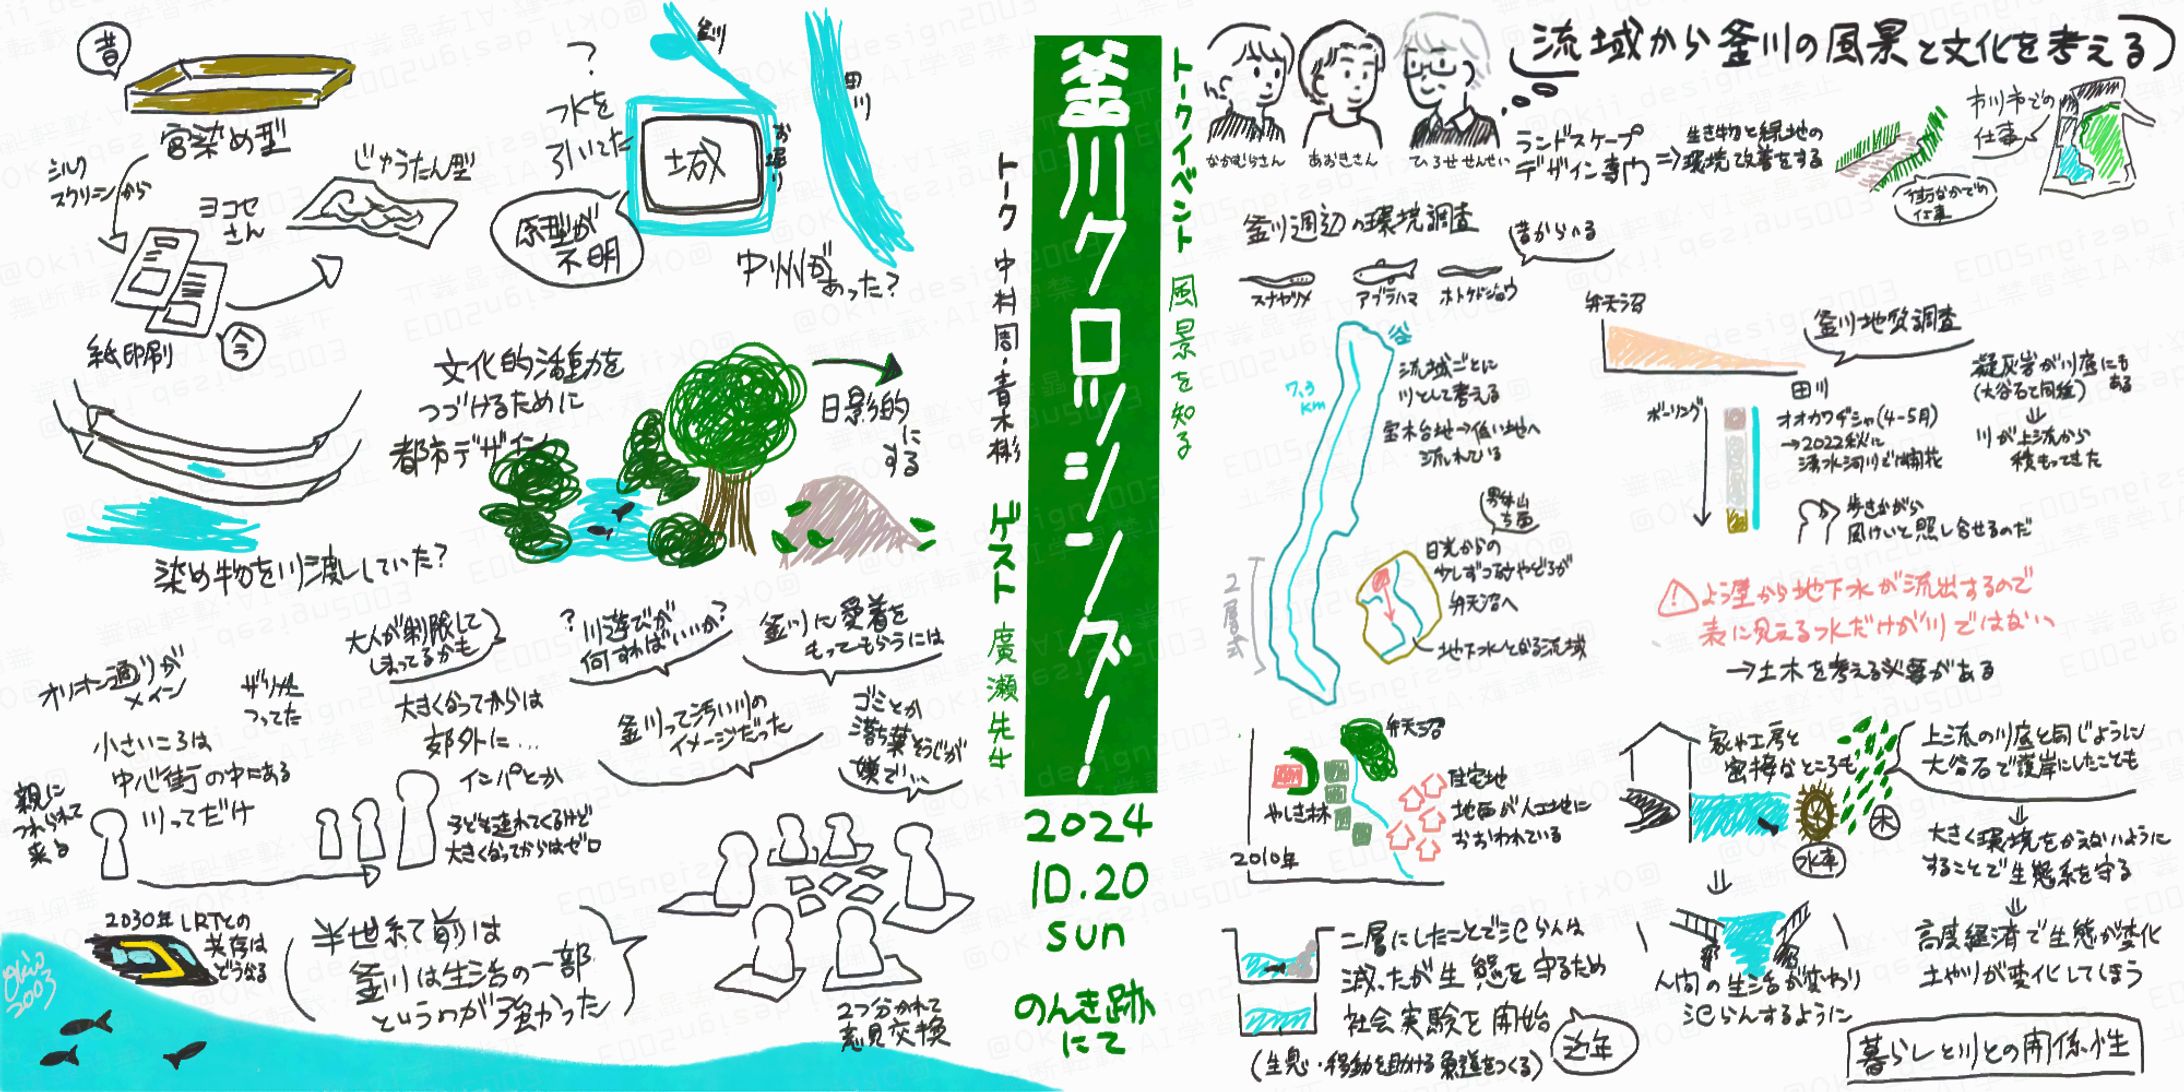 釜川クロッシング！
トークイベント 風景を知る
トーク 中村周・青木彬 ゲスト 廣瀬先生
2024
10.20
sun
のんき跡
にて
流域から釜川の風景と文化を考える
なかむらさん
あおきさん
ひろせせんせい
ランドスケープ
デザイン専門
⇒
生き物と緑地の
環境改善をする
街なかでの
仕事
市川市での
仕事
釜川週辺の環境調査
昔からいる
スナヤツメ
アブラハヤ
ホトケドジョウ
釜
7.3
km
流域ごとに
川として考える
宝木台地→低い地へ
流れている
2層式
男体山
日光からの
少しずつ砂やどろが
弁天沼へ
地下水となる流域
弁天沼
田川
釜川地質調査
凝灰岩が川底にも
ある
(大谷石と同種)
⇓
川が上流から
積もってきた
ボーリング
オオカワヂシャ(4-5月)
→2022秋に
湧水河川では開花
歩きながら
風けいと照し合せるのだ
よう壁から地下水が流出するので
表に見える水だけが川ではない
→土木を考える必要がある
弁天沼
やしき林
2010年
住宅地
地面が人工地に
おおわれている
家や工房と
密接なところも
水車
木
上流の川底と同じように
大谷石で護岸にしたことも
⇓
大きく環境をかえないように
することで生態系を守る
⇓
高度経済で生態が変化
土やりが変化してしまう
⇓
人間の生活が変わり
氾らんするように
二層にしたことで氾らんは
減ったが生態を守るため
社会実験を開始
近年
(生息・移動を助ける魚道をつくる)
暮らしと川との関係性
昔
宮染め型
シルク
スクリーンから
ヨコセ
さん
じゅうたん型
紙印刷
今
?
水を
引いてた
釜川
田川
城
お堀り
原型が
不明
中州が
あった?
染め物を川渡ししていた?
文化的活動を
つづけるために
都市デザイン
日影的
にする
大人が制限して
しまってるかも
?
川遊びが
何すればいいか?
釜川に愛着を
もってもらうには
オリオン通りが
メイン
ザリガニ
つってた
小さいころは
中心街の中にある
川ってだけ
大きくなってからは
郊外に...
インパとか
釜川って汚い川の
イメージだった
ゴミとか
落ち葉そうじが
嫌で...
親に
つれられて
来る
子ども連れてくるけど
大きくなってからはゼロ
2030年LRTとの
共存は
どうなる
半世紀前は
釜川は生活の一部
というのが強かった
2つ分かれて
意見交換
Okii
2003
@Okii_design2003
無断転載・AI学習禁止